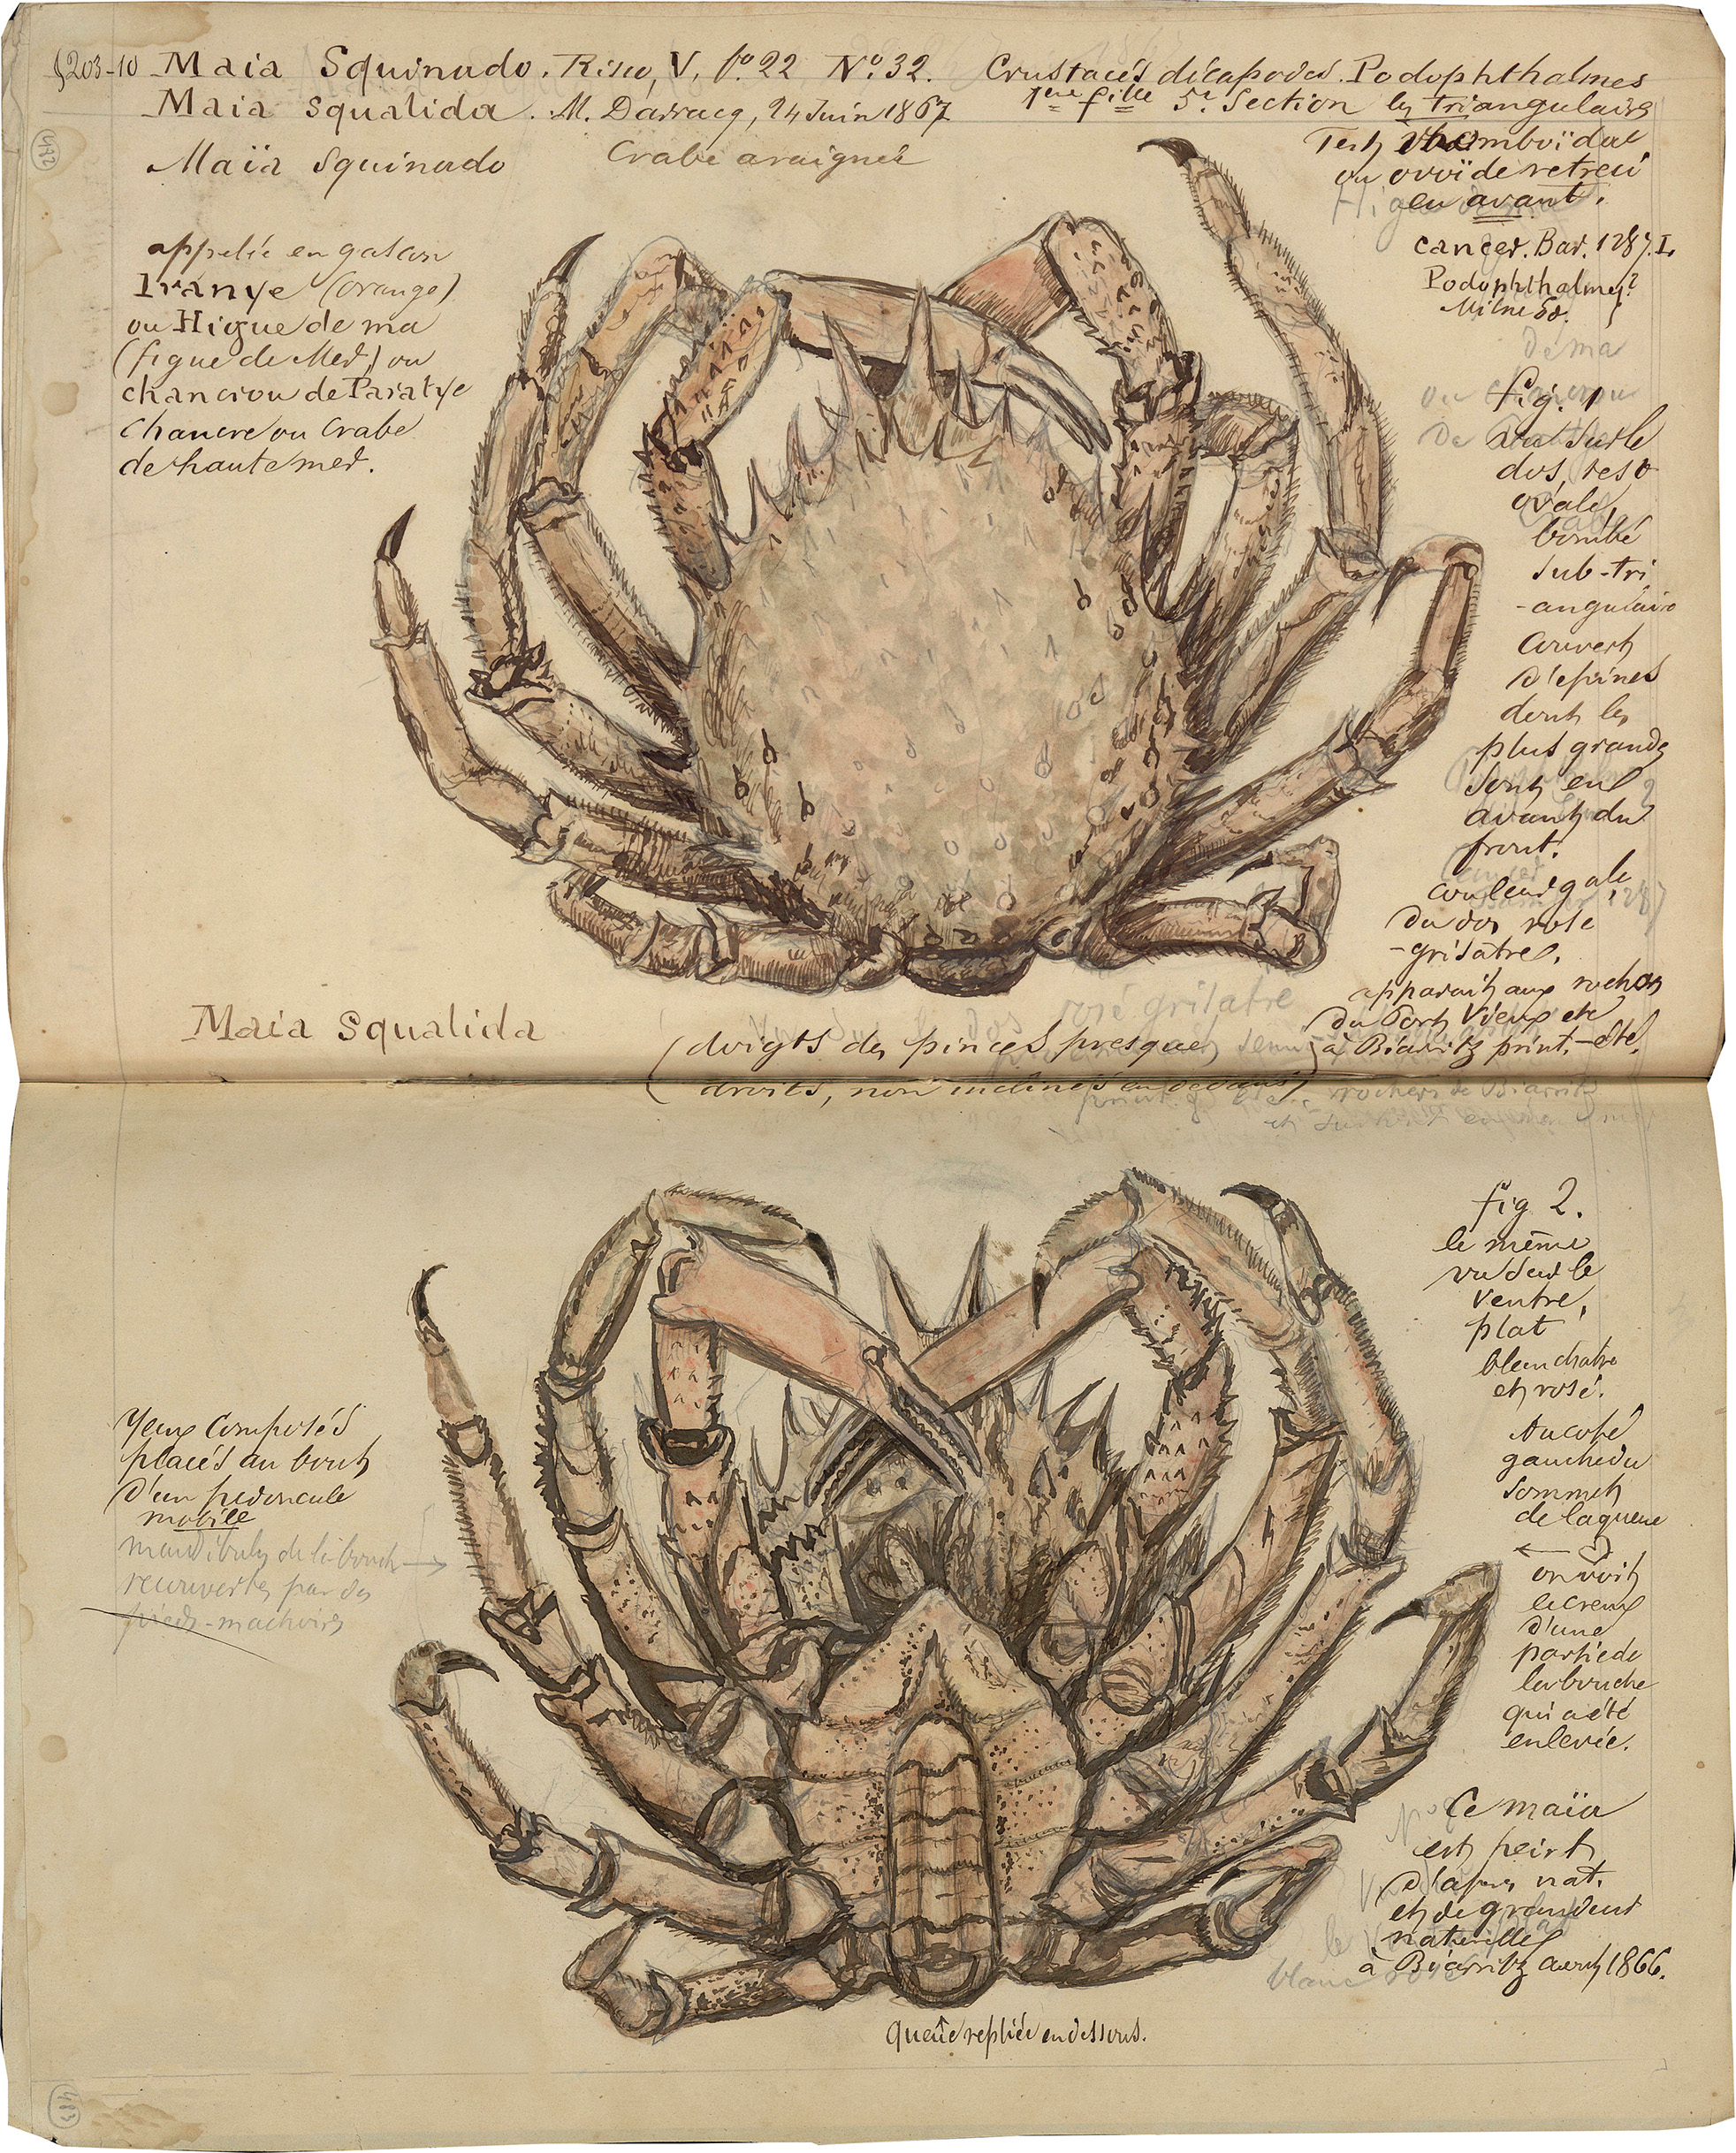 §203-10 Maia Squinado. Risso, V. f.º 22 Nº. 32. Crustacés décapodes. Podophthalmes
Maia squalida. M. Darracq, 24 Juin 1867 1ère fille 5e Section les triangulaires
Maïa Squinado Crabe araignée
Test rhomboïdal
ou ovoïde retreci
en avant.
cancer. Bar. 1287. L
Podophthalmes?
Milne Ed.
appelée en gascon
Iranye (orange)
ou Higue de ma
(figue de Mer) ou
chancrou de Paratye
Chancre ou Crabe
de haute mer.
fig. 1
vu sur le
dos, test
ovale,
bombé
sub-tri
-angulaire
couvert
d'épines
dont les
plus grandes
sont en
avant du
front.
couleur gale
du dos rose
-grisatre.
apparait aux rochers
du Port Vieux etc
à Biarritz print.-été.
Maia Squalida
rosé grisatre
(doigts des pinces presque
droits, non inclinés en dedans)
rochers de Biarritz
fig 2.
le même
vu sur le
ventre,
plat
blanchatre
et rosé.
Au coté
gauche du
sommet
de la queue
on voit
le creux
d'une
partie de
la bouche
qui a été
enlevée.
Yeux composés
placés au bout
d'un pedoncule
mobile
mandibules de la bouche
recouvertes par des
pieds-machoires
Ce maïa
est peint
d'après nat.
et de grandeur
naturelle
à Biarritz avril 1866.
Queue repliée en dessous.
482
483